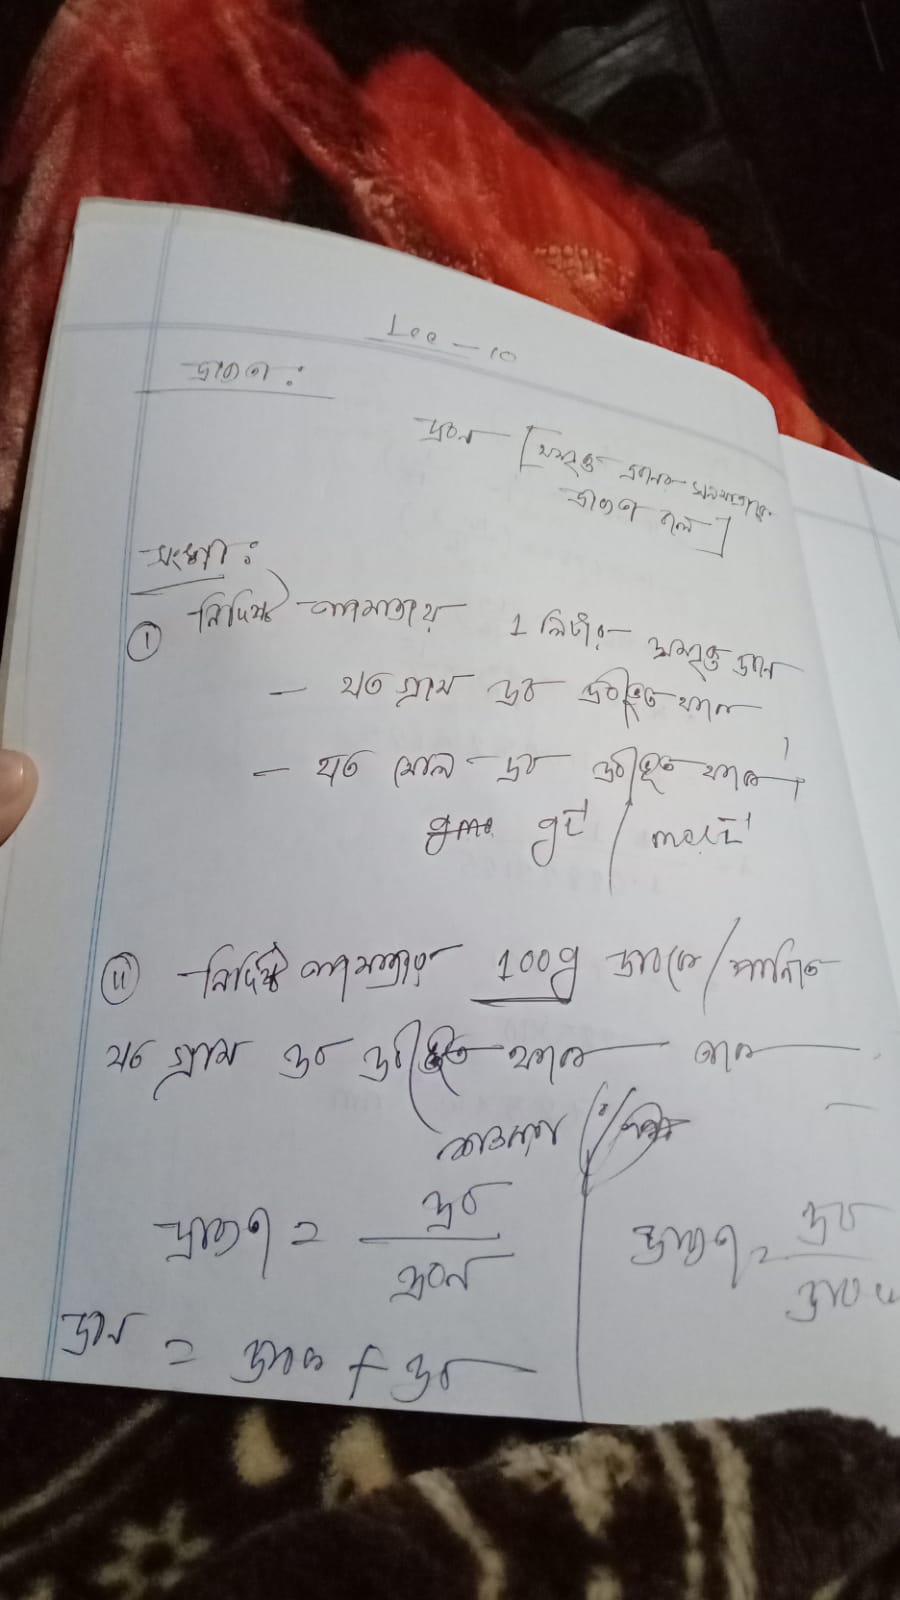 Lec - 10
দ্রাব্যতা :
দ্রবন [সম্পৃক্ত দ্রবনের ঘনমাত্রাকে
দ্রাব্যতা বলে]
সংজ্ঞা :
(i) নির্দিষ্ট তাপমাত্রায় 1 লিটার সম্পৃক্ত দ্রবনে
– যত গ্রাম দ্রব দ্রবীভূত থাকে
– যত মোল দ্রব দ্রবীভূত থাকে।
gL⁻¹ / molL⁻¹
(ii) নির্দিষ্ট তাপমাত্রায় 100g দ্রাবকে/পানিতে
যত গ্রাম দ্রব দ্রবীভূত থাকে তাকে
দ্রাব্যতা = দ্রব / দ্রবন
দ্রাব্যতা = দ্রব / দ্রাবক
দ্রবন = দ্রাবক + দ্রব